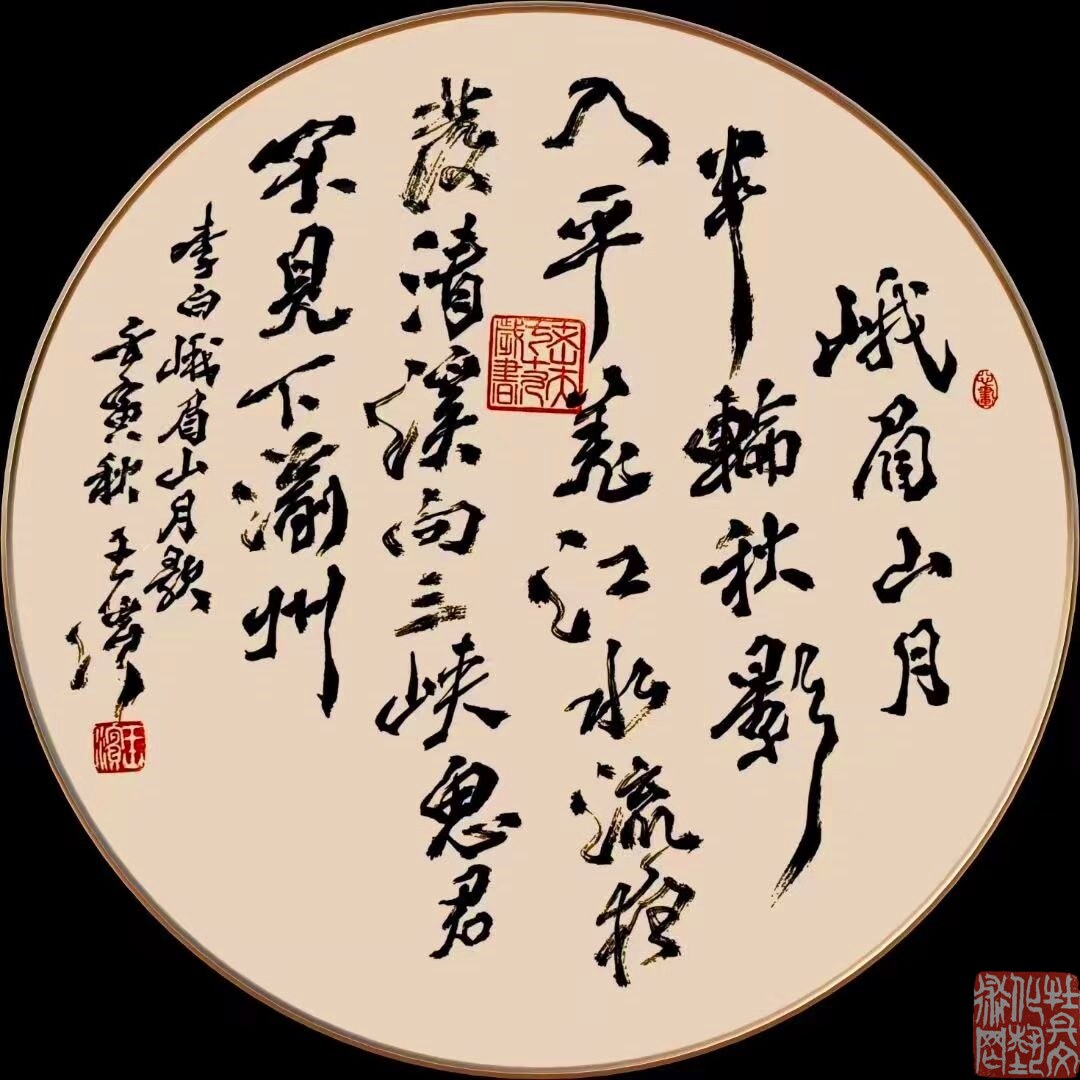 峨眉山月
半輪秋影
入平羌江水流夜
發清溪向三峡思君
不見下渝州
李白峨眉山月歌
壬寅秋王濱